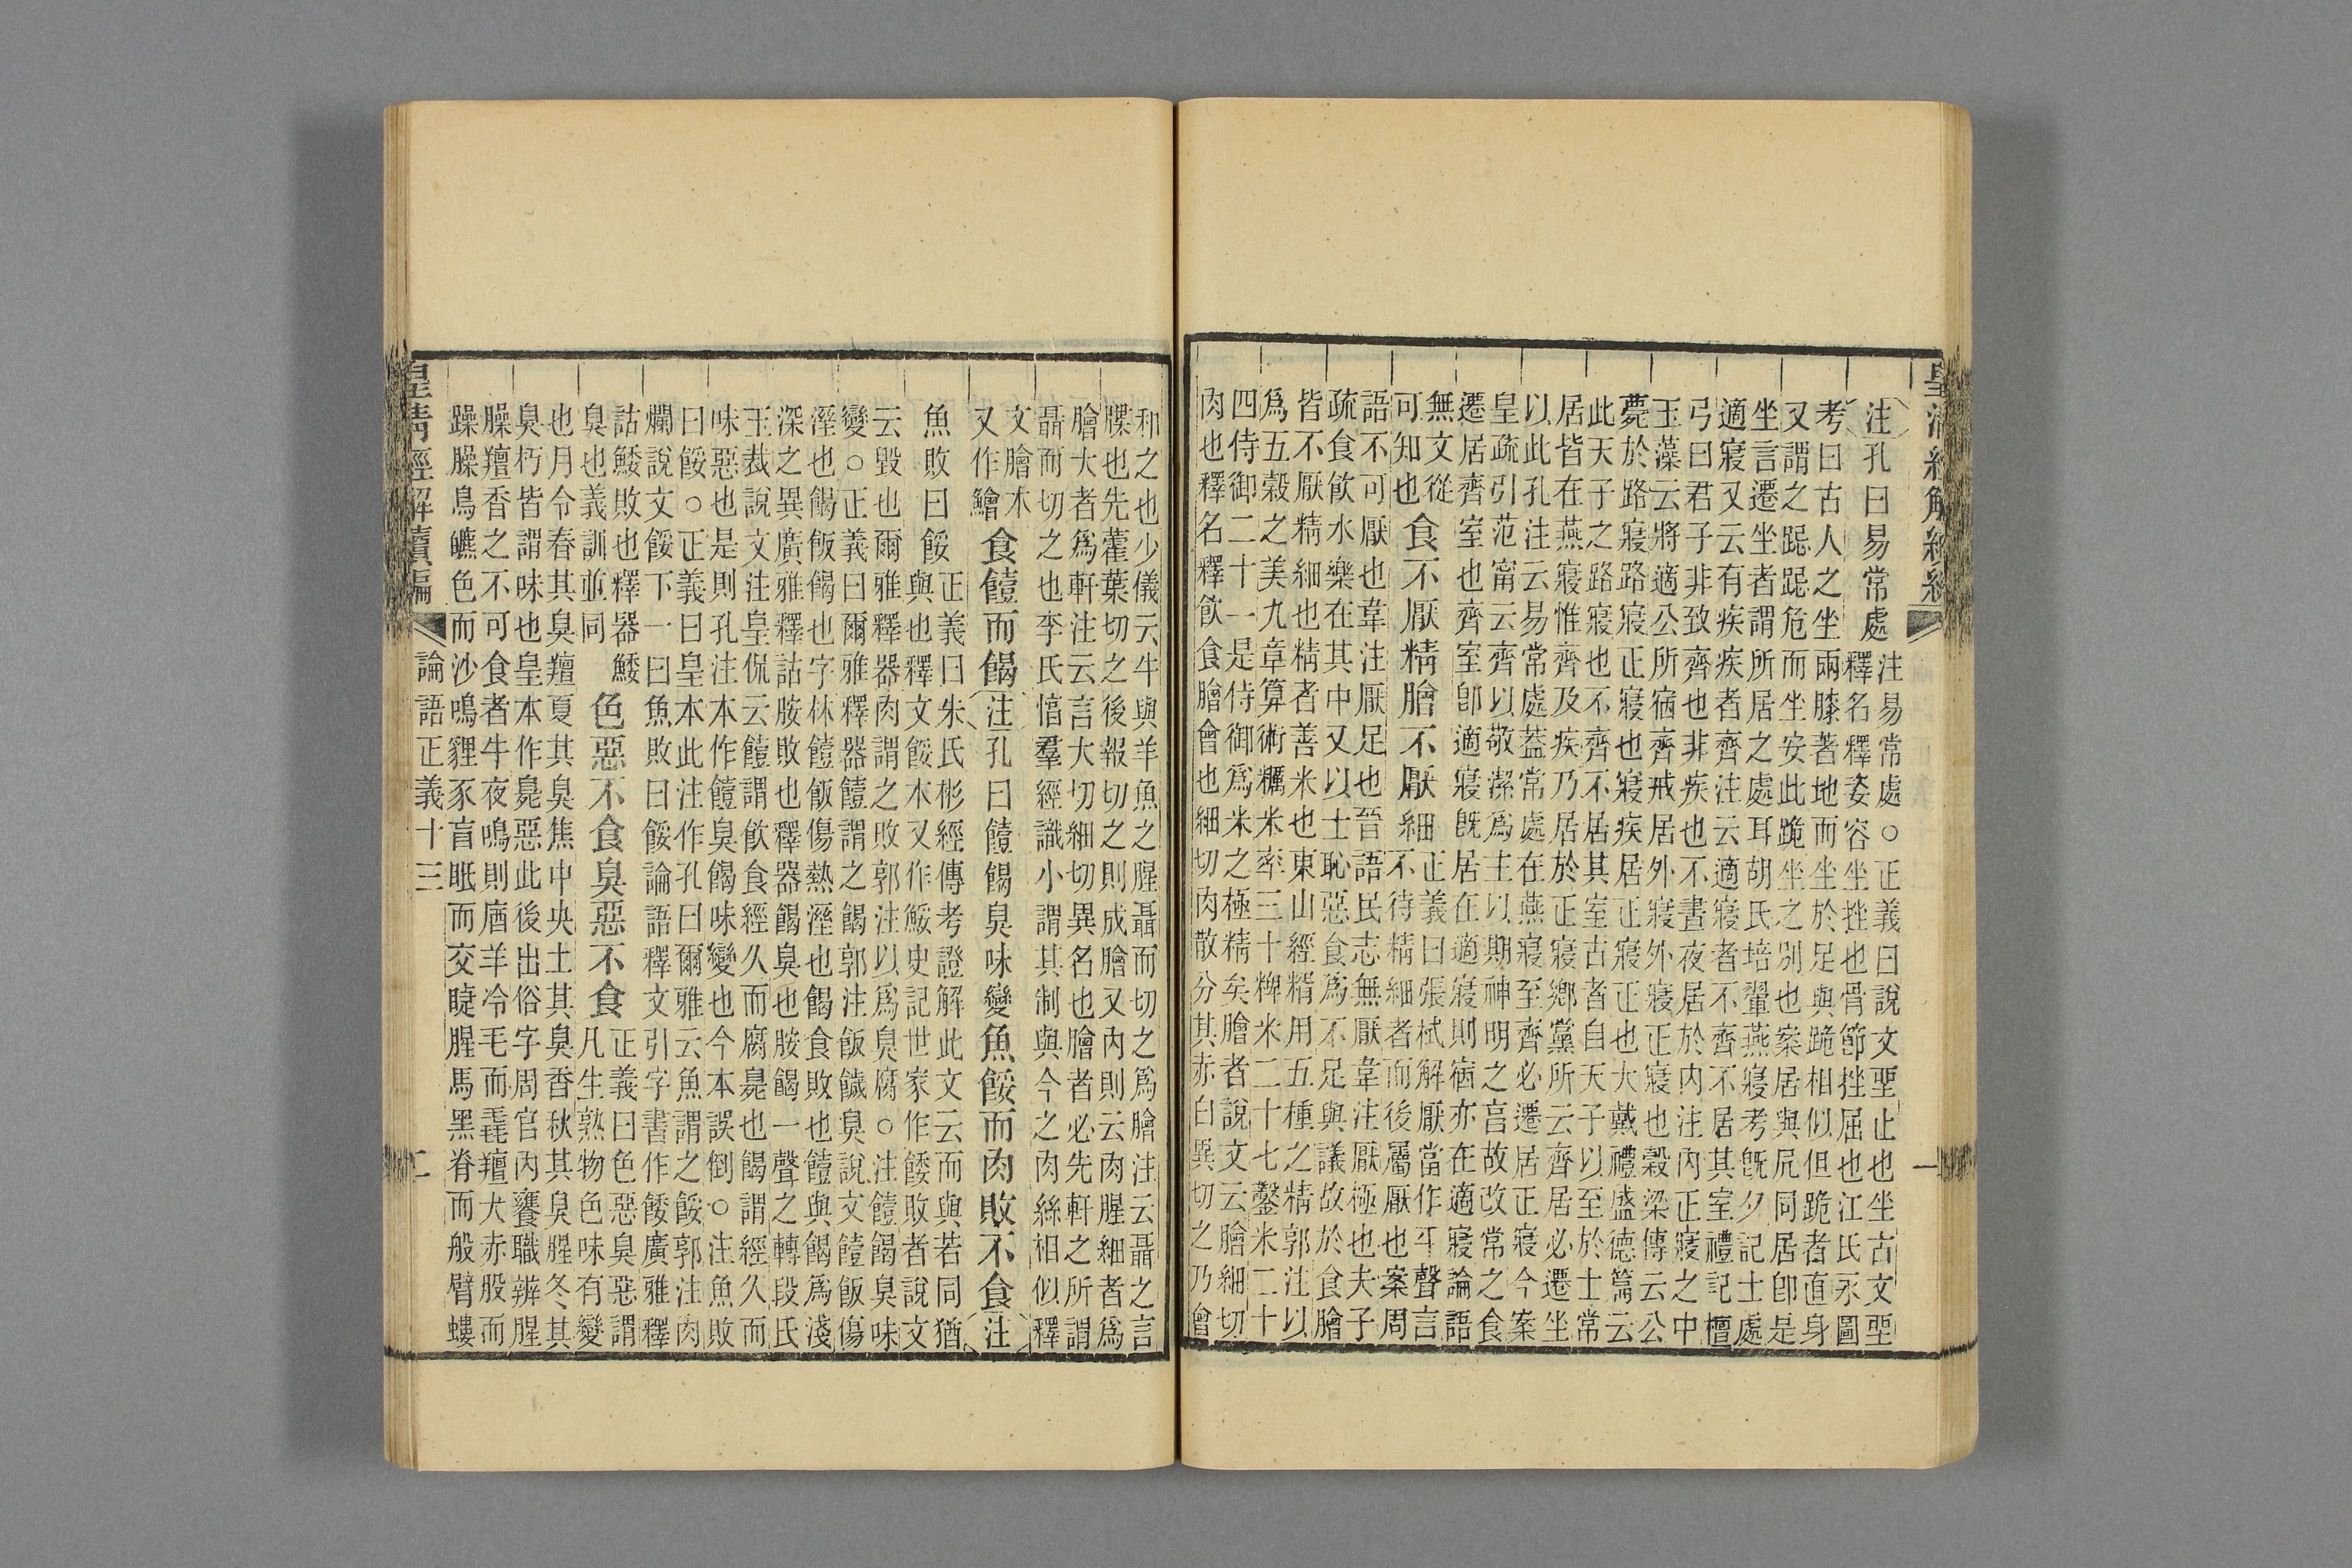 皇清經解續編
一
注孔曰易常處
注易常處○正義曰說文坙止也坐古文坙
釋名釋姿容坐挫也骨節挫屈也江氏永圖
考曰古人之坐兩膝著地而坐於足與跪相似但跪者直身
又謂之跽跽危而坐安此跪坐之別也案居與凥同居卽是
坐言遷坐者謂所居之處耳胡氏培翬燕寢考旣夕記士處
適寢又云有疾疾者齊注云適寢者不齊不居其室禮記檀
弓曰君子非致齊也非疾也不晝夜居於內注內正寢之中
玉藻云將適公所宿齊戒居外寢外寢正寢也穀梁傳云公
薨於路寢路寢正寢也寢疾居正寢正也大戴禮盛德篇云
此天子之路寢也不齊不居其室古者自天子以至於士常
居皆在燕寢惟齊及疾乃居於正寢鄉黨所云齊居必遷坐
以此孔注云易常處葢常處在燕寢至齊必遷居正寢今案
皇疏引范甯云齊以敬潔爲主以期神明之言故改常之食
遷居齊室也齊室卽適寢旣居在適寢則宿亦在適寢論語
無文從
可知也
食不厭精膾不厭細
正義曰張栻解厭當作平聲言
不待精細者而後屬厭也案周
語不可厭也韋注厭足也晉語民志無厭韋注厭極也夫子
疏食飮水樂在其中又以士恥惡食爲不足與議故於食膾
皆不厭精細也精者善米也東山經糈用五種之精郭注以
爲五穀之美九章算術糲米率三十粺米二十七鑿米二十
四侍御二十一是侍御爲米之極精矣膾者說文云膾細切
肉也釋名釋飮食膾會也細切肉散分其赤白異切之乃會
和之也少儀云牛與羊魚之腥聶而切之爲膾注云聶之言
牒也先藿葉切之後報切之則成膾又內則云肉腥細者爲
膾大者爲軒注云言大切細切異名也膾者必先軒之所謂
聶而切之也李氏惇羣經識小謂其制與今之肉絲相似釋
文膾本
又作鱠
食饐而餲
注孔曰饐餲臭味變
魚餒而肉敗不食
注
魚敗曰餒
正義曰朱氏彬經傳考證解此文云而與若同猶
與也釋文餒本又作鮾史記世家作餧敗者說文
云毀也爾雅釋器肉謂之敗郭注以爲臭腐○注饐餲臭味
變○正義曰爾雅釋器饐謂之餲郭注飯饖臭說文饐飯傷
溼也餲飯餲也字林饐飯傷熱溼也餲食敗也饐與餲爲淺
深之異廣雅釋詁胺敗也釋器餲臭也胺餲一聲之轉段氏
玉裁說文注皇侃云饐謂飮食經久而腐臰也餲謂經久而
味惡也是則孔注本作饐臭餲味變也今本誤倒○注魚敗
曰餒○正義曰皇本此注作孔曰爾雅云魚謂之餒郭注肉
爛說文餒下一曰魚敗曰餒論語釋文引字書作餧廣雅釋
詁鮾敗也釋器鮾
臭也義訓並同
色惡不食臭惡不食
正義曰色惡臭惡謂
凡生熟物色味有變
也月令春其臭羶夏其臭焦中央土其臭香秋其臭腥冬其
臭朽皆謂味也皇本作臰惡此後出俗字周官內饔職辨腥
臊羶香之不可食者牛夜鳴則庮羊冷毛而毳羶犬赤股而
躁臊鳥皫色而沙鳴貍豕盲眂而交睫腥馬黑脊而般臂螻
皇清經解續編
論語正義十三
二